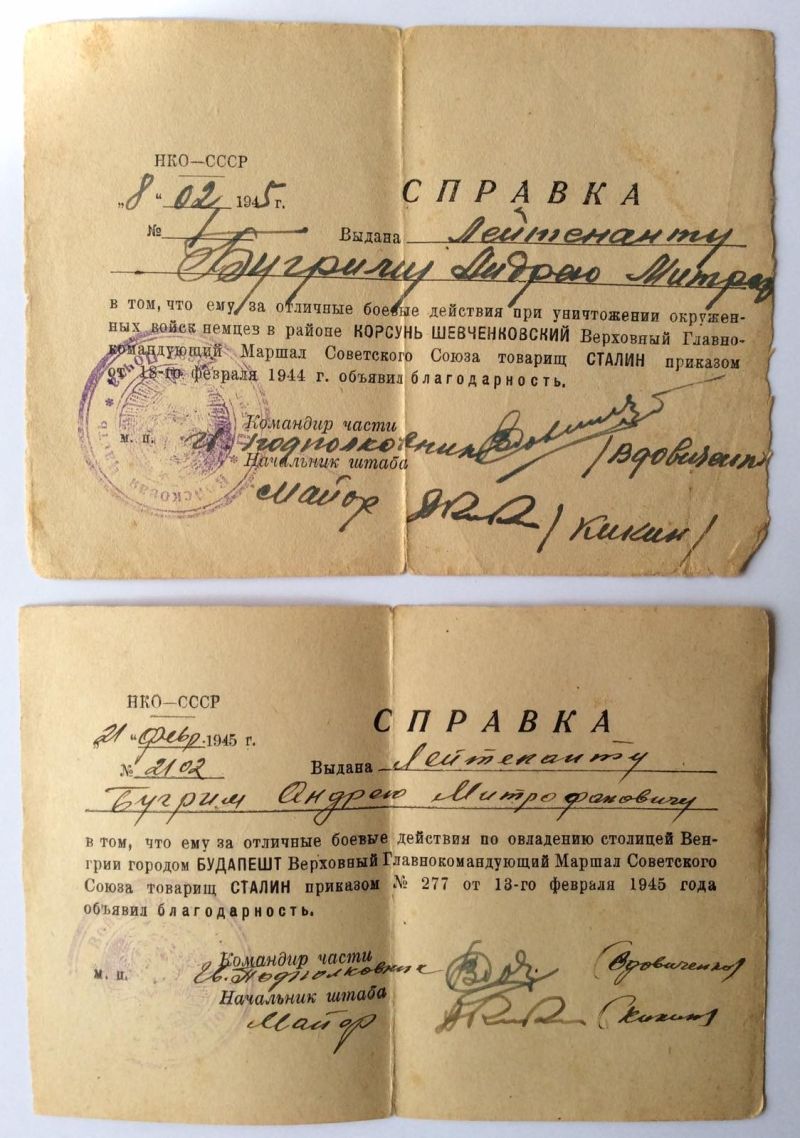 НКО—СССР
„8“ 02 1945 г.
СПРАВКА
№
Выдана Лейтенанту
Бугриму Андрею Митроф
в том, что ему за отличные боевые действия при уничтожении окружен-
ных войск немцев в районе КОРСУНЬ ШЕВЧЕНКОВСКИЙ Верховный Главно-
командующий Маршал Советского Союза товарищ СТАЛИН приказом
от 18-го февраля 1944 г. объявил благодарность.
Командир части
м. п. Гв. подполковник /Вдовиченко
Начальник штаба
Майор /Кикин/
НКО—СССР
„21“ февр. 1945 г.
СПРАВКА
№ 2102
Выдана Лейтенанту
Бугрим Андрею Митрофановичу
в том, что ему за отличные боевые действия по овладению столицей Вен-
грии городом БУДАПЕШТ Верховный Главнокомандующий Маршал Советского
Союза товарищ СТАЛИН приказом № 277 от 13-го февраля 1945 года
объявил благодарность.
Командир части
м. п. Гв. Подполковник (Вдовиченко)
Начальник штаба
Майор (Кикин)